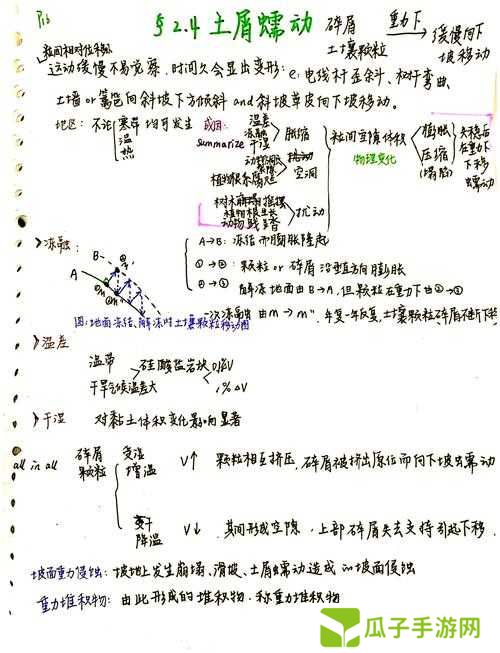 P15
§2.4 土屑蠕动 碎屑 土壤颗粒 重力下 缓慢向下坡移动
粒间相对位移
运动缓慢不易觉察，时间久会显出变形：e：电线杆歪斜、树干弯曲、
土墙 or 篱笆向斜坡下方倾斜 and 斜坡草皮向下坡移动。
地区：不论 寒 温 热 带均可发生
成因：
summarize
温差
冻融
干湿
胀缩
植物根系腐烂
空洞
树木 摇摆
植物根生长
动物践踏
扰动
粒间空隙体积
物理变化
膨胀
压缩
(塌陷)
失稳后
在重力
下移
蠕动
>冻融：
A B
A→B：冻结而膨胀隆起
①→②：颗粒 or 碎屑沿垂直方向膨胀
②→③ 解冻地面由B→A，但颗粒在重力下由②→③
一次冻融由m→m''，年复一年反复，土壤颗粒碎屑不断下移
图：地面冻结、解冻时土壤颗粒移动图
>温差
温带
干旱气候温差大
硅酸盐岩块
1% ΔV
>干湿 对黏土体积变化影响显著
all in all
碎屑
颗粒
受湿
增温
V↑ 颗粒相互挤压，碎屑被挤出原位而向下坡蠕动
变干
降温
V↓ 其间形成空隙，上部碎屑失去支持引起下移
坡面重力侵蚀：坡地上发生崩塌、滑坡、土屑蠕动造成的坡面侵蚀
重力堆积物：由此形成的堆积物，称重力堆积物
瓜子手游网